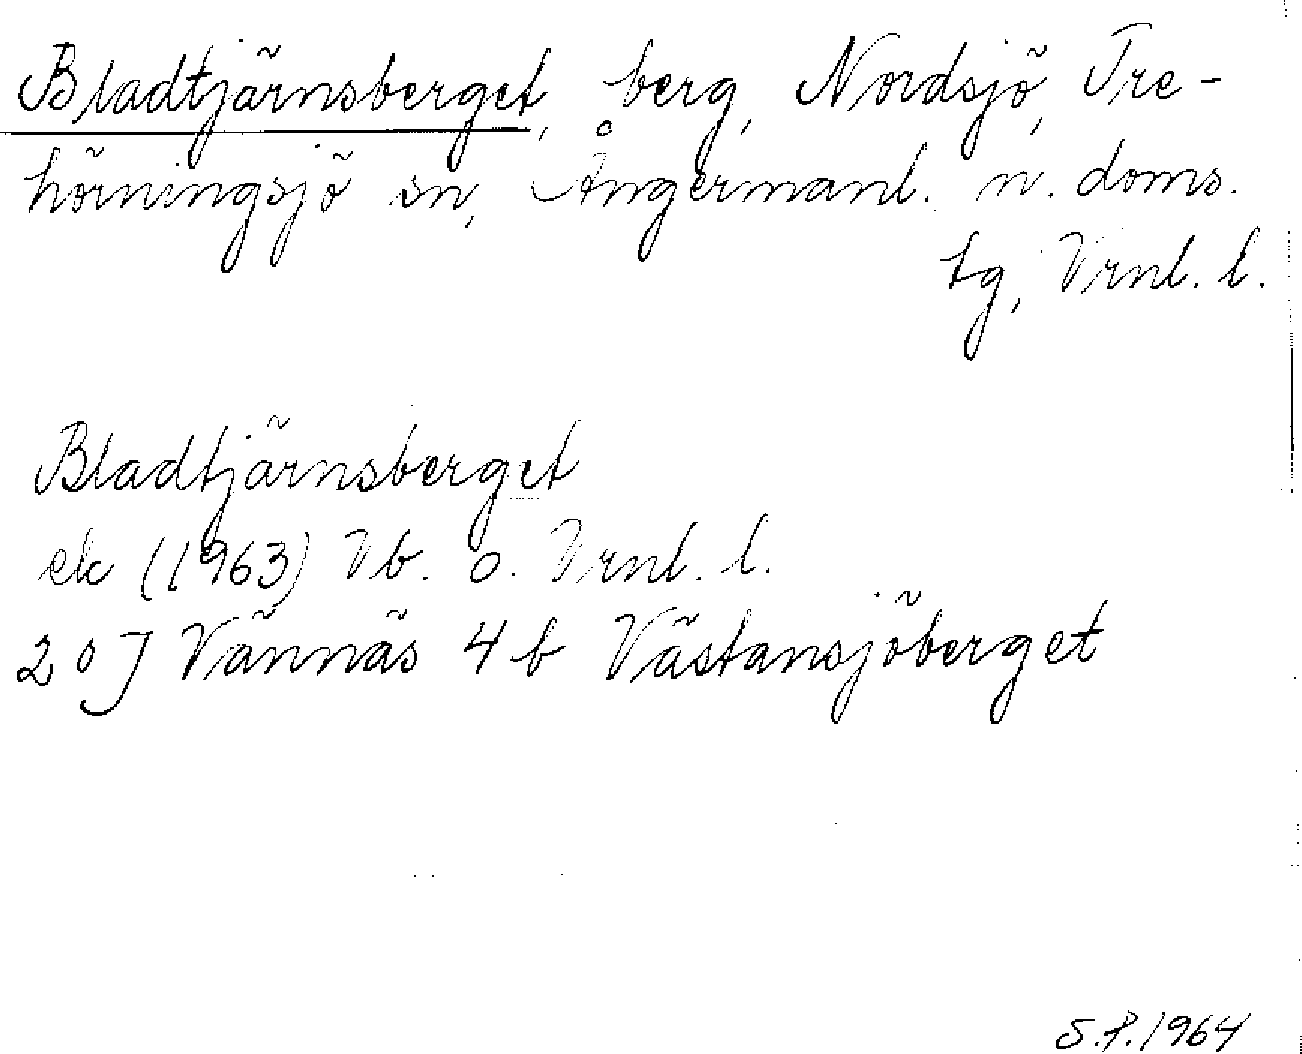 Bladtjärnsberget, berg, Nordsjö, Tre-
hörningsjö sn, Ångermanl. n. doms.
tg, Vrnl. l.
Bladtjärnsberget
ek (1963) Vb. o. Vrnl. l.
20J Vännäs 4b Västansjöberget
S.P. 1964